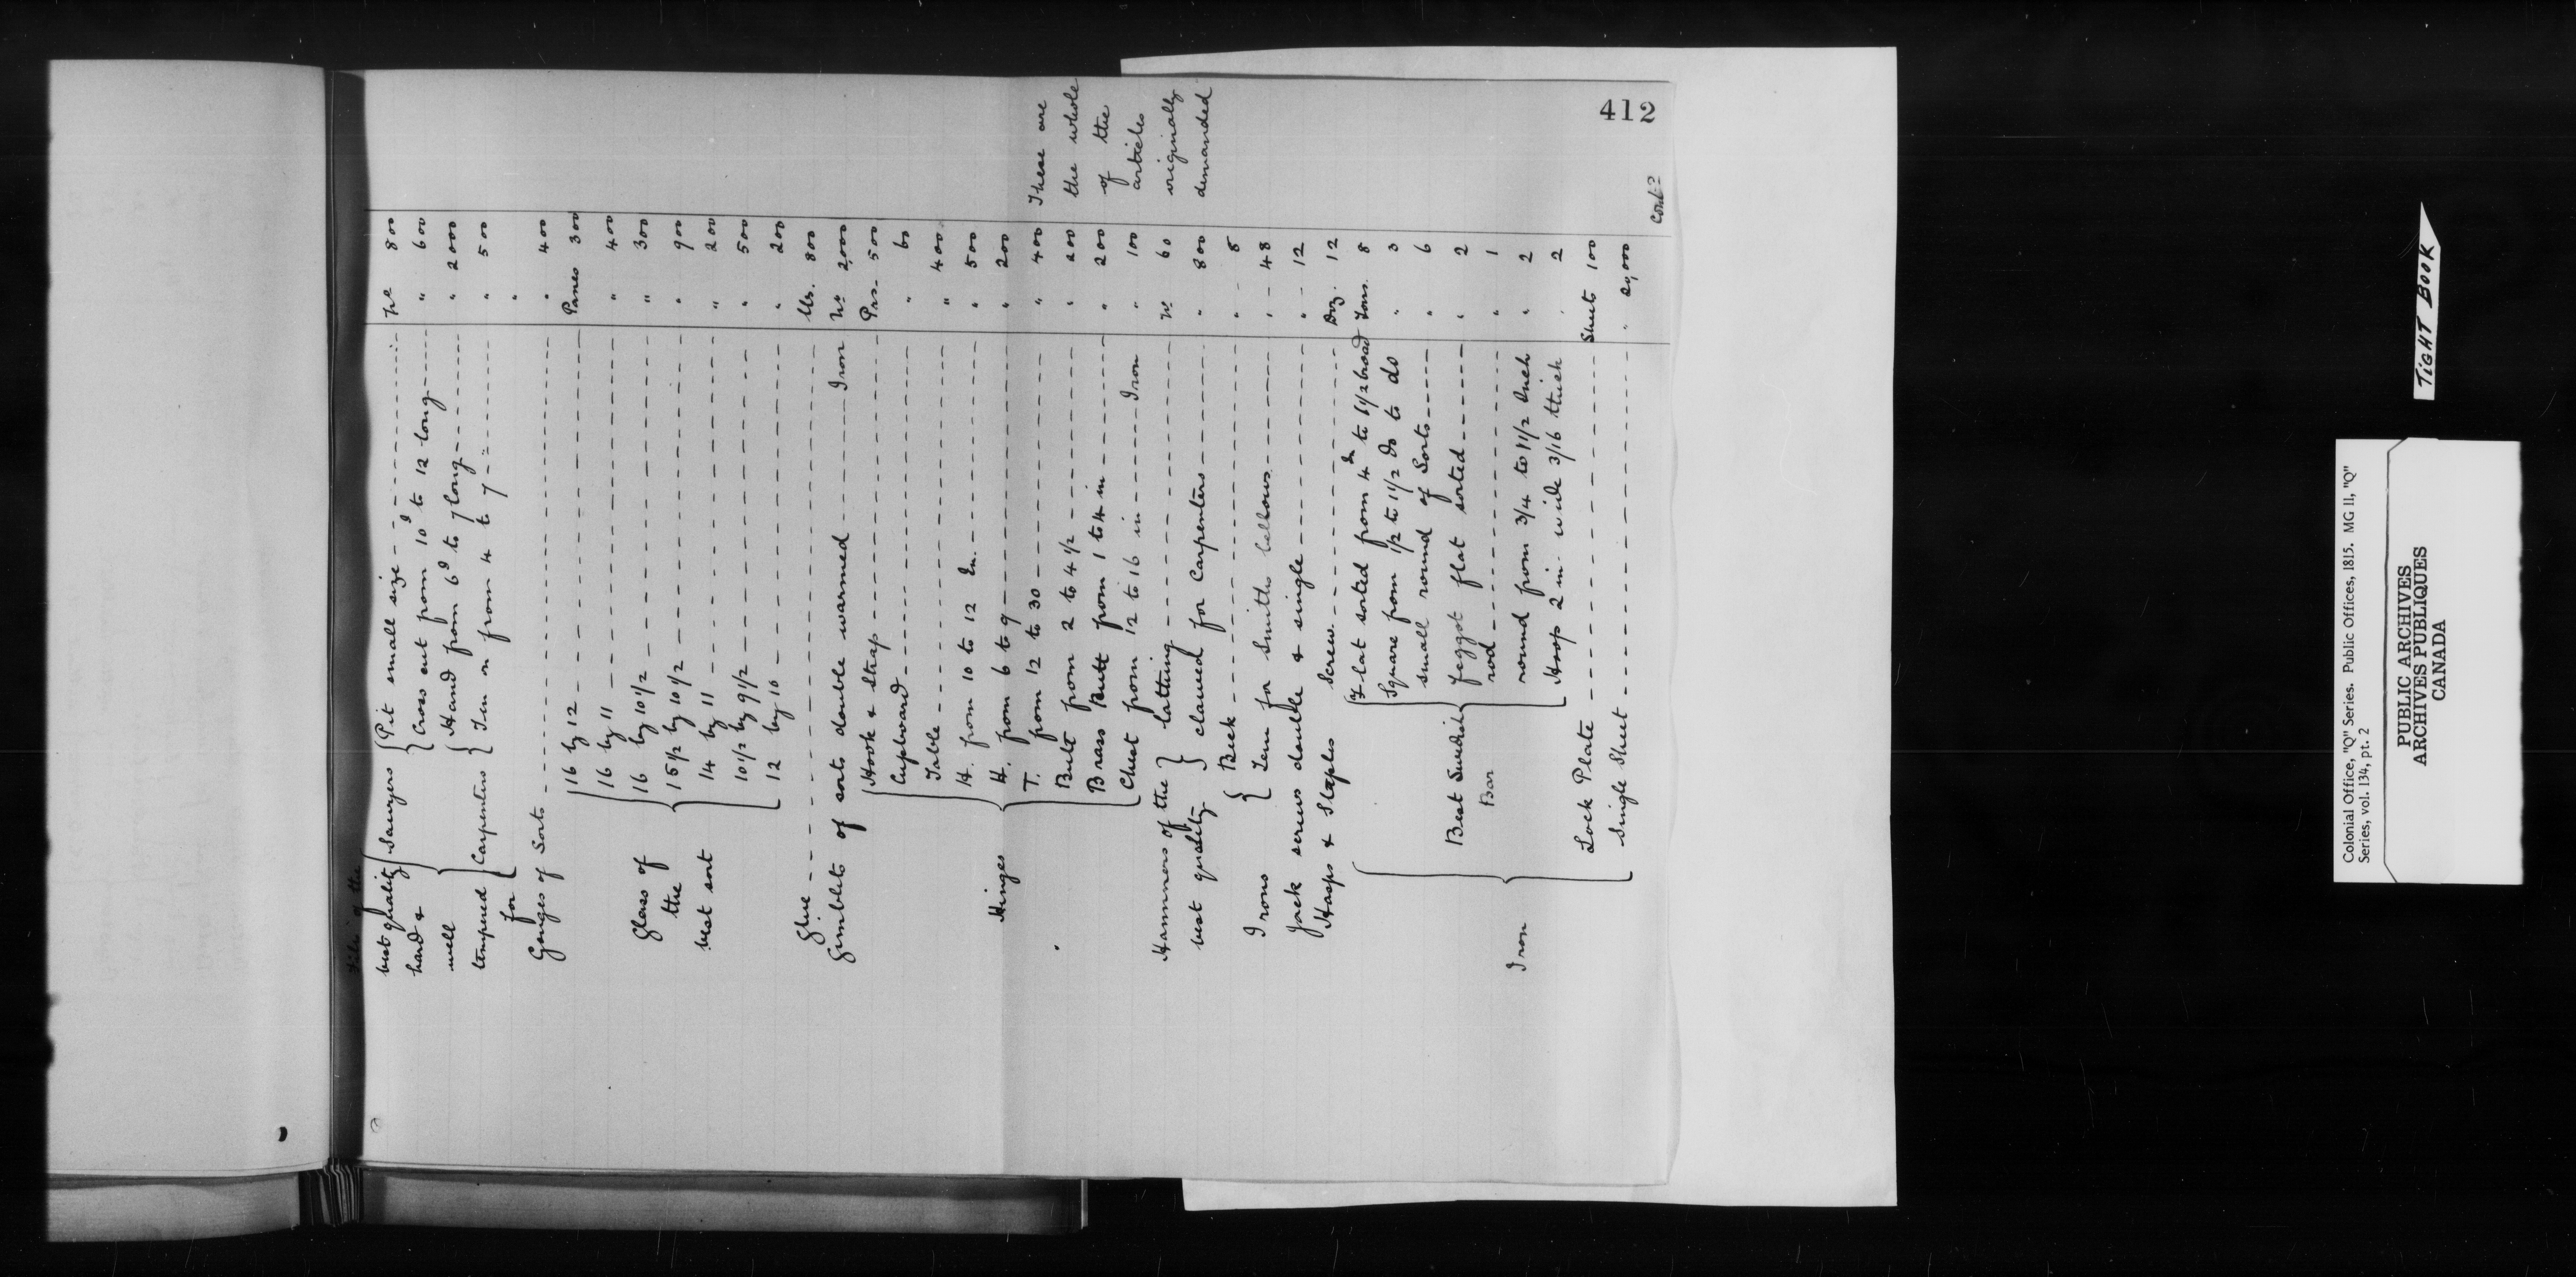 412
Files of the
best quality { Sawyers { Pit small size --- No 800
hard & { Cross cut from 10d to 12 long --- " 600
well { Hand from 6d to 7 long --- " 2000
tempered } Carpenters { Ten n from 4 to 7 --- " 500
for "
Gouges of Sorts --- " 400
16 by 12 --- Panes 300
16 by 11 --- " 400
Glass of 16 by 10 1/2 --- " 300
the 15 1/2 by 10 1/2 --- " 900
best sort 14 by 11 --- " 200
10 1/2 by 9 1/2 --- " 500
12 by 10 --- " 200
Glue --- lbs. 800
Gimblets of sorts double warmed --- Iron No 2,000
Hook & Strap --- Prs. 500
Cupboard --- " 60
Table --- " 400
H. from 10 to 12 In. --- " 500
Hinges H. from 6 to 9 --- " 200
T. from 12 to 30 --- " 400 These are
Butt from 2 to 4 1/2 --- " 200 the whole
Brass Butt from 1 to 4 in --- " 200 of the
Chest from 12 to 16 in --- Iron " 100 articles
Hammers of the } latting --- No 60 originally
best quality } clawed for Carpenters --- " 800 demanded
{ Beck --- " 8
Irons { Tem for Smiths bellows --- " 48
Jack screws double & single --- " 12
Hasps & Staples Screw --- Doz. 12
{ Flat sorted from 4 In to 6 1/2 broad Tons. 8
Square from 1/2 to 1 1/2 do to do " 3
small round of Sorts --- " 6
Best Swedish { feggot flat sorted --- " 2
Bar rod --- " 1
round from 3/4 to 1 1/2 Inch " 2
Iron Hoop 2 in wide 3/16 thick " 2
Lock Plate --- Sheet 100
Single Sheet --- " 20,000
Contd
TIGHT BOOK
Colonial Office, "Q" Series. Public Offices, 1815. MG 11, "Q"
Series, vol. 134, pt. 2
PUBLIC ARCHIVES
ARCHIVES PUBLIQUES
CANADA